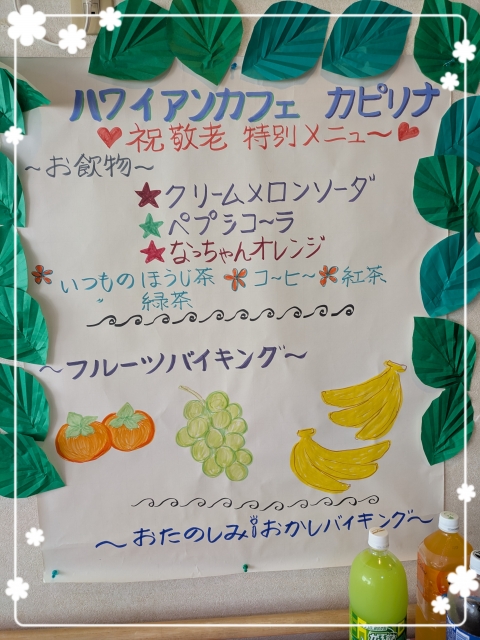 ハワイアンカフェ カピリナ
祝敬老 特別メニュ〜
〜お飲物〜
クリームメロンソーダ
ペプシコ〜ラ
なっちゃんオレンジ
いつものほうじ茶 コ〜ヒ〜 紅茶
〃 緑茶
〜フルーツバイキング〜
〜おたのしみ!おかしバイキング〜